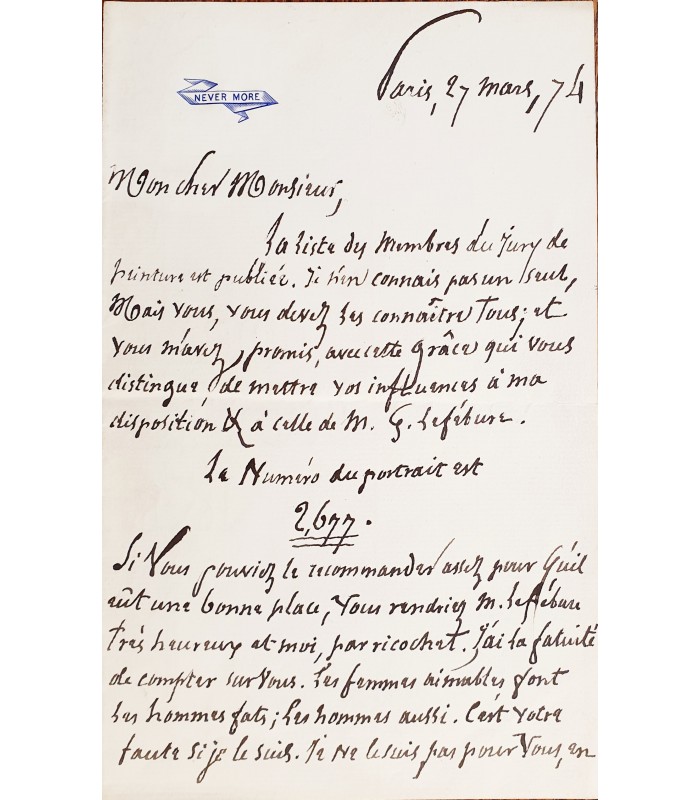 NEVER MORE
Paris, 27 mars, 74
Mon cher Monsieur,
La liste des Membres du Jury de
peinture est publiée. Je n'en connais pas un seul,
Mais vous, vous devez les connaître Tous; et
vous m'avez promis, avec cette Grâce qui vous
distingue, de mettre vos influences à ma
disposition & à celle de M. G. Lefébure.
Le Numéro du portrait est
2,677.
Si Vous pouviez le recommander assez pour Qu'il
eût une bonne place, Vous rendriez M. Lefébure
Très heureux et moi, par ricochet. J'ai la fatuité
de compter sur Vous. Les femmes aimables font
les hommes fats; les hommes aussi. C'est votre
faute si je le suis. Je Ne le suis pas pour Vous, en